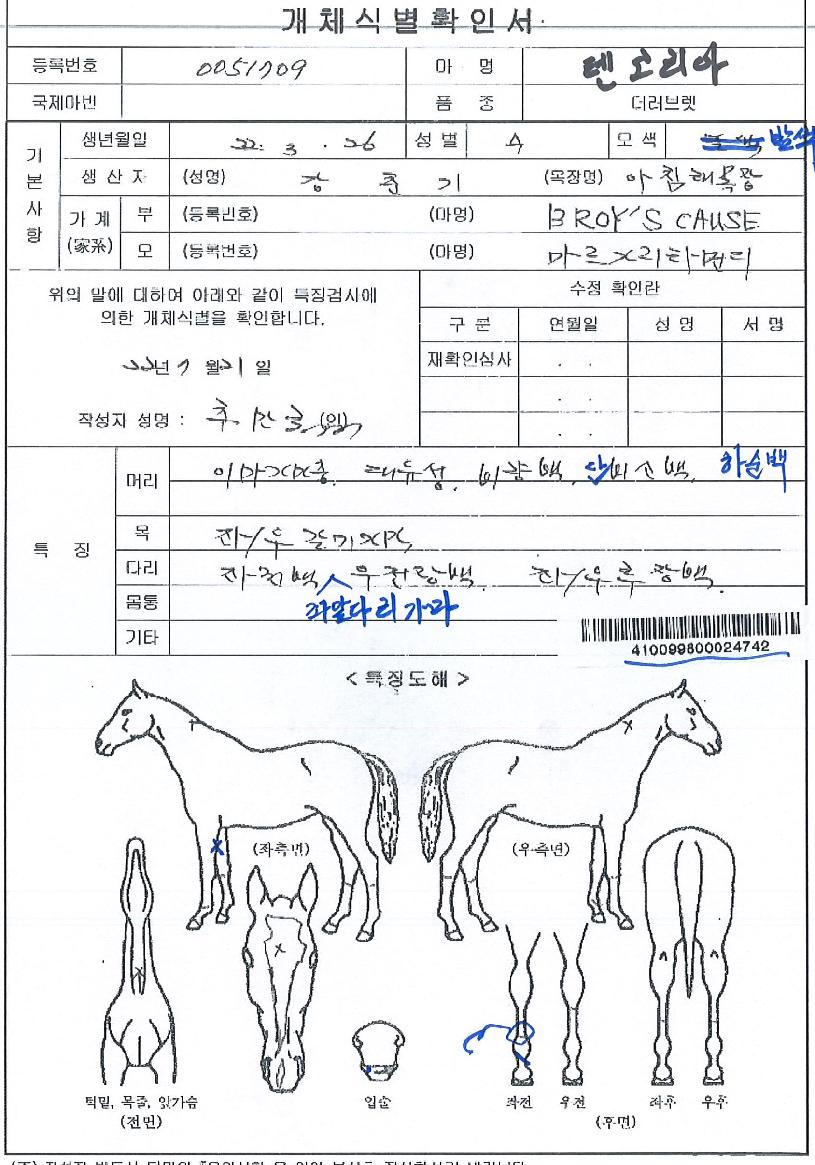 개체식별확인서
등록번호 0051709 마 명 텐소리아
국제마번 품 종 더러브렛
기본사항
생년월일 22. 3. 26 성별 수 모색 밤색
생산자 (성명) 강 훈 기 (목장명) 아침해목장
가계 (家系) 부 (등록번호) (마명) BROY'S CAUSE
모 (등록번호) (마명)
위의 말에 대하여 아래와 같이 특징검사에
의한 개체식별을 확인합니다.
22년 7월 21일
작성자 성명 : (인)
수정 확인란
구 분 연월일 성 명 서 명
재확인심사 . .
. .
. .
특 징
머리 이마 대유성. 비량백. 단비소백. 하순백
목 좌/우 갈기
다리 좌전백 우전 좌/우후장백.
좌앞다리가마
몸통
기타
410099800024742
<특징도해>
(좌측면) (우측면)
턱밑, 목줄, 앞가슴
(전면)
입술
좌전 우전 좌후 우후
(후면)